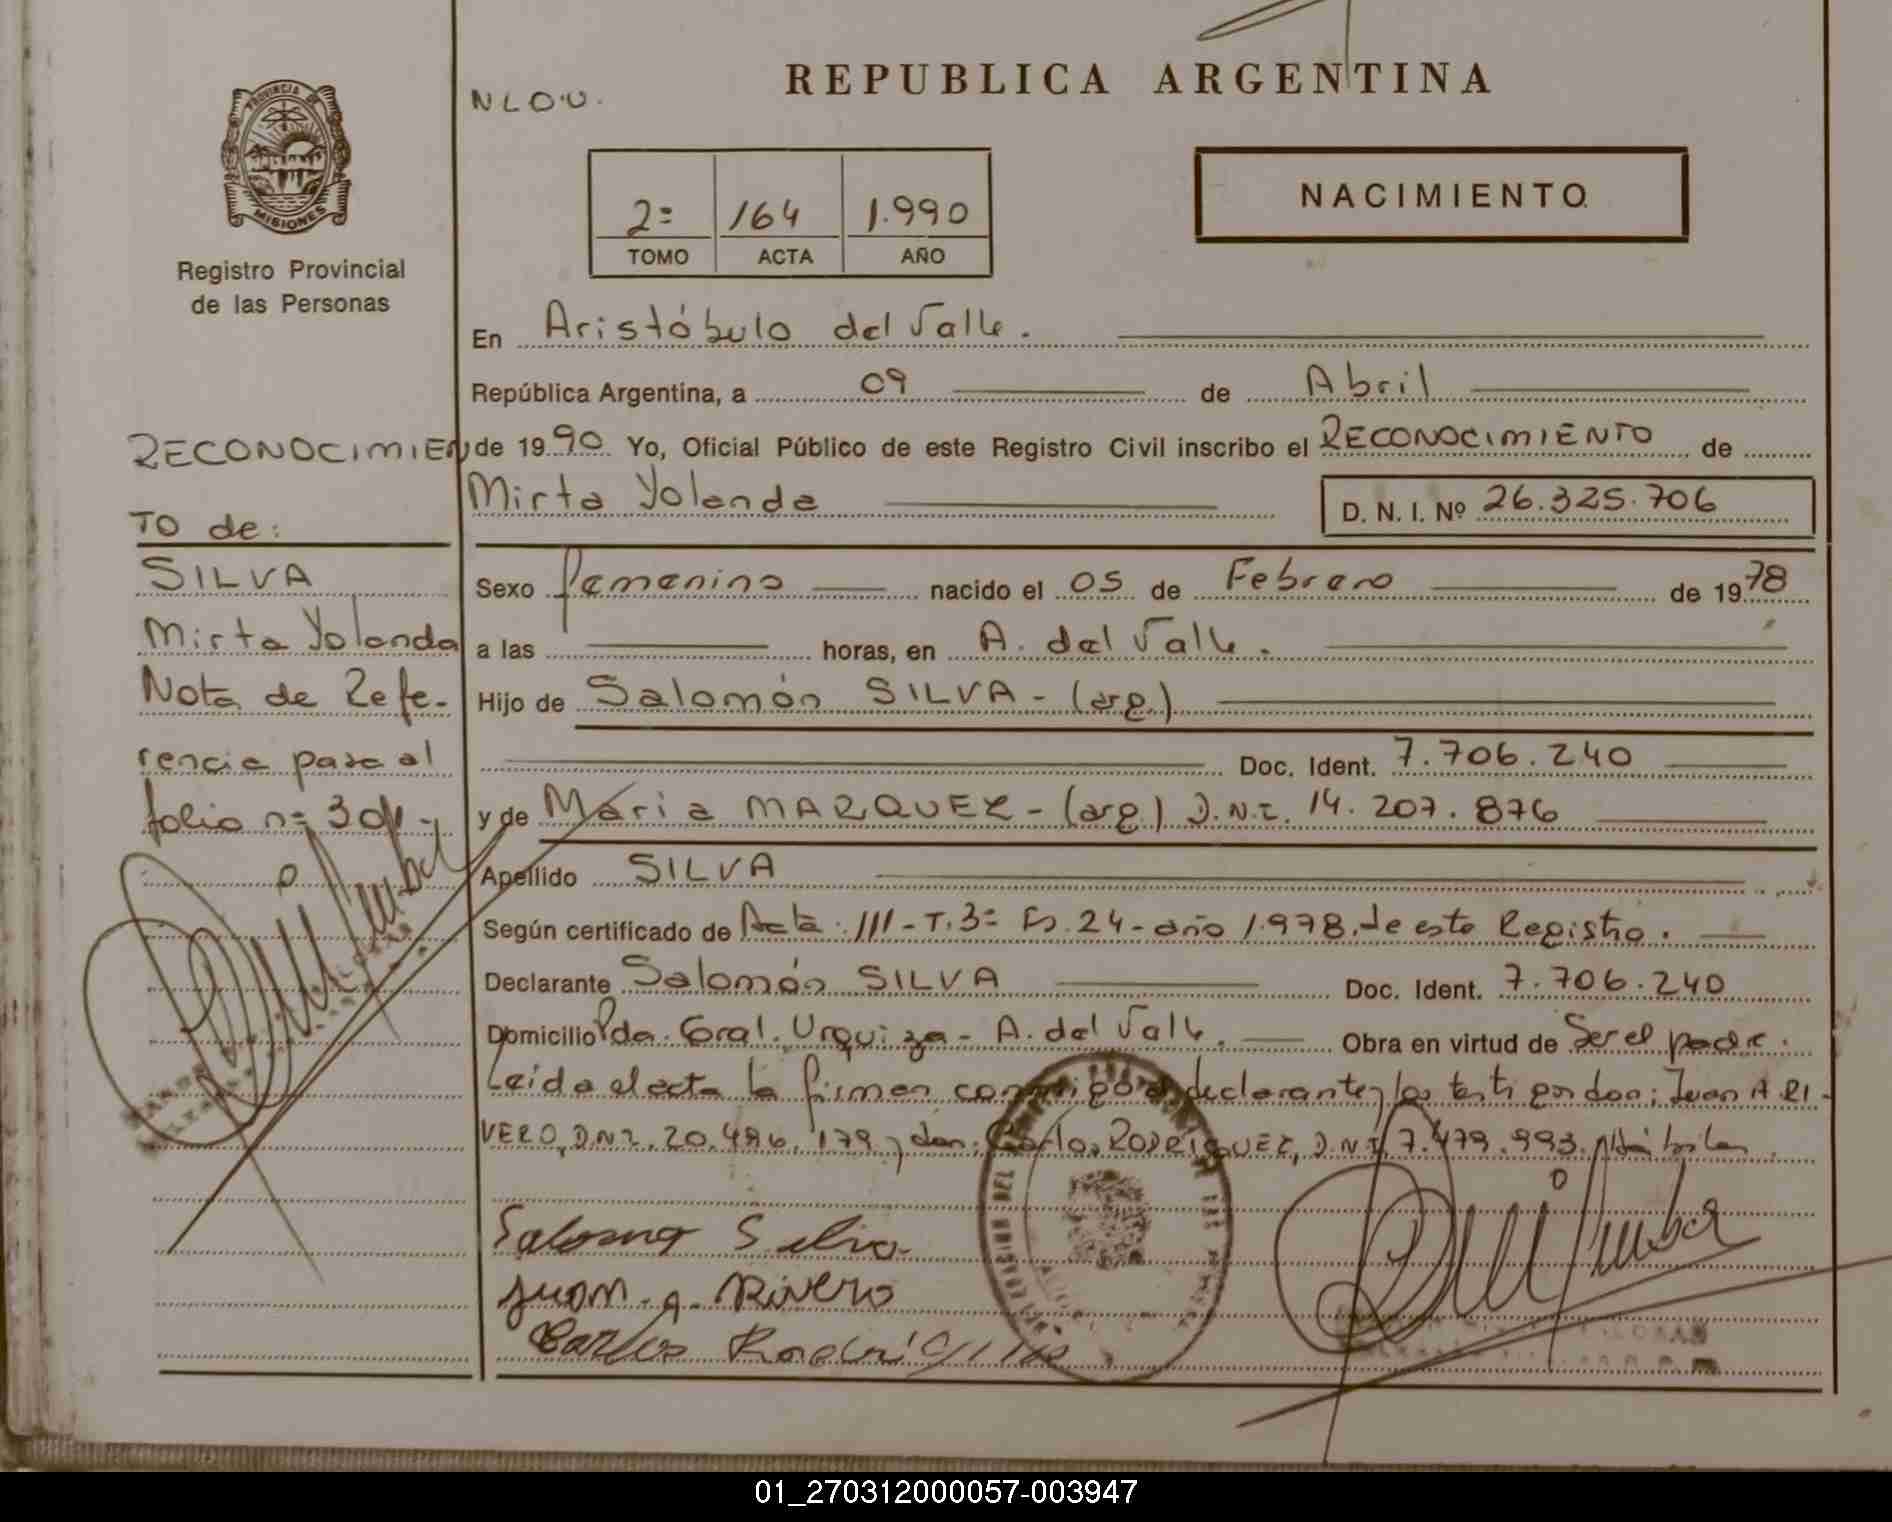 REPUBLICA ARGENTINA
NLO.U.
PROVINCIA DE
MISIONES
Registro Provincial
de las Personas
2= 164 1.990
TOMO ACTA AÑO
NACIMIENTO
En Aristóbulo del Valle.
República Argentina, a 09 de Abril
de 1990 Yo, Oficial Público de este Registro Civil inscribo el RECONOCIMIENTO de
Mirta Yolanda D. N. I. Nº 26.325.706
Sexo femenino nacido el 05 de Febrero de 1978
a las horas, en A. del Valle.
Hijo de Salomón SILVA - (arg.)
Doc. Ident. 7.706.240
y de Maria MARQUEZ - (arg.) D.N.I. 14.207.876
Apellido SILVA
Según certificado de Acta 111 - T. 3= Fs. 24 - año 1.978. de este Registro.
Declarante Salomón SILVA Doc. Ident. 7.706.240
Domicilio Pda. Gral. Urquiza - A. del Valle. Obra en virtud de Ser el padre.
Leida el acta la firman conmigo el declarante y los testigos don: Juan A. RI-
VERO, D.N.I. 20.496.179 y don: Carlos RODRIGUEZ, D.N.I. 7.479.993. Hábiles.
Salomon Silva
Juan. A. Rivero
Carlos Rodríguez
RECONOCIMIEN
TO de:
SILVA
Mirta Yolanda
Nota de Refe-
rencia pasa al
folio n=
01_270312000057-003947